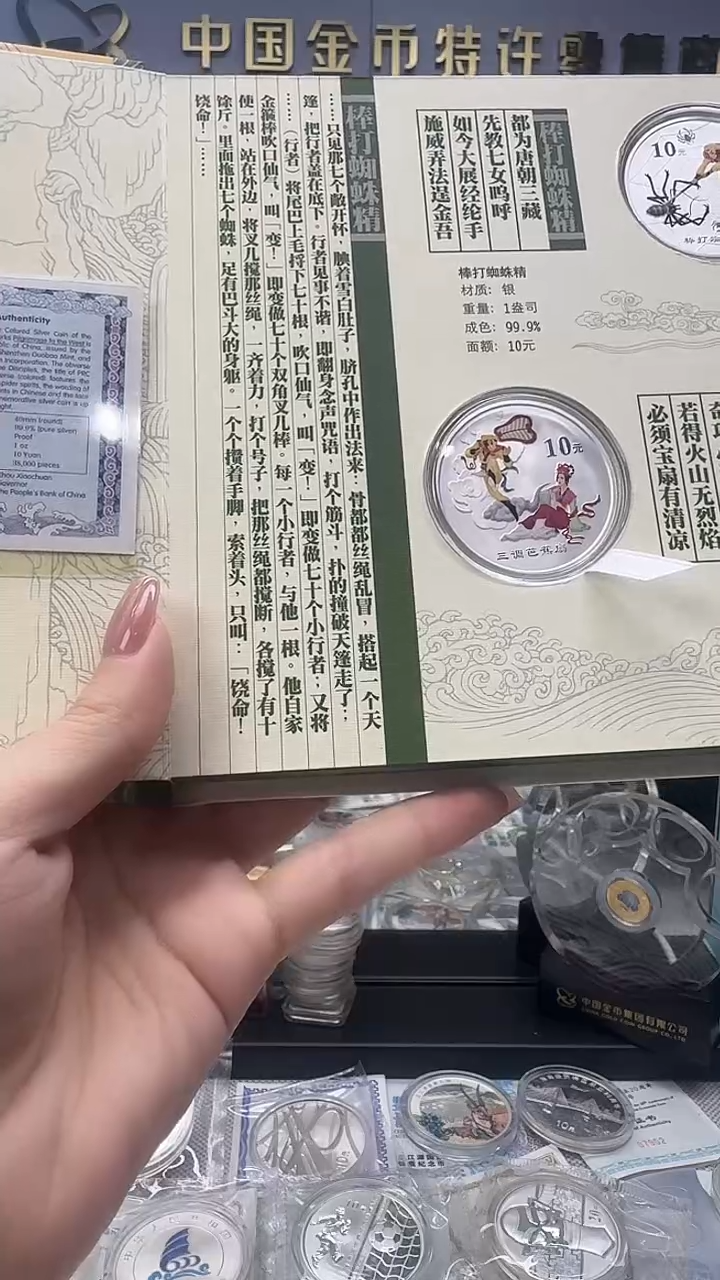 中国金币特许
棒打蜘蛛精
……只见那七个敞开怀，腆着雪白肚子，脐孔中作出法来：骨都都丝绳乱冒，搭起一个天
篷，把行者盖在底下。行者见事不谐，即翻身念声咒语，打个筋斗，扑的撞破天篷走了；
……（行者）将尾巴上毛捋下七十根，吹口仙气，叫「变！」即变做七十个小行者；又将
金箍棒吹口仙气，叫「变！」即变做七十个双角叉儿棒。每一个小行者，与他一根。他自家
使一根，站在外边，将叉儿搅那丝绳，一齐着力，打个号子，把那丝绳都搅断，各搅了有十
馀斤。里面拖出七个蜘蛛，足有巴斗大的身躯。一个个攒着手脚，索着头，只叫：「饶命！
饶命！」……
棒打蜘蛛精
都为唐朝三藏
先教七女呜呼
如今大展经纶手
施威弄法逞金吾
棒打蜘蛛精
材质：银
重量：1盎司
成色：99.9%
面额：10元
10元
10元
三调芭蕉扇
若得火山无烈焰
必须宝扇有清凉
Authenticity
Colored Silver Coin of the
Pilgrimage to the West
40mm (round)
99.9% (pure silver)
Proof
1 oz
10 Yuan
38,000 pieces
Zhou Xiaochuan
Governor
The People's Bank of China
中国金币集团有限公司
CHINA GOLD COIN GROUP CO., LTD
10元